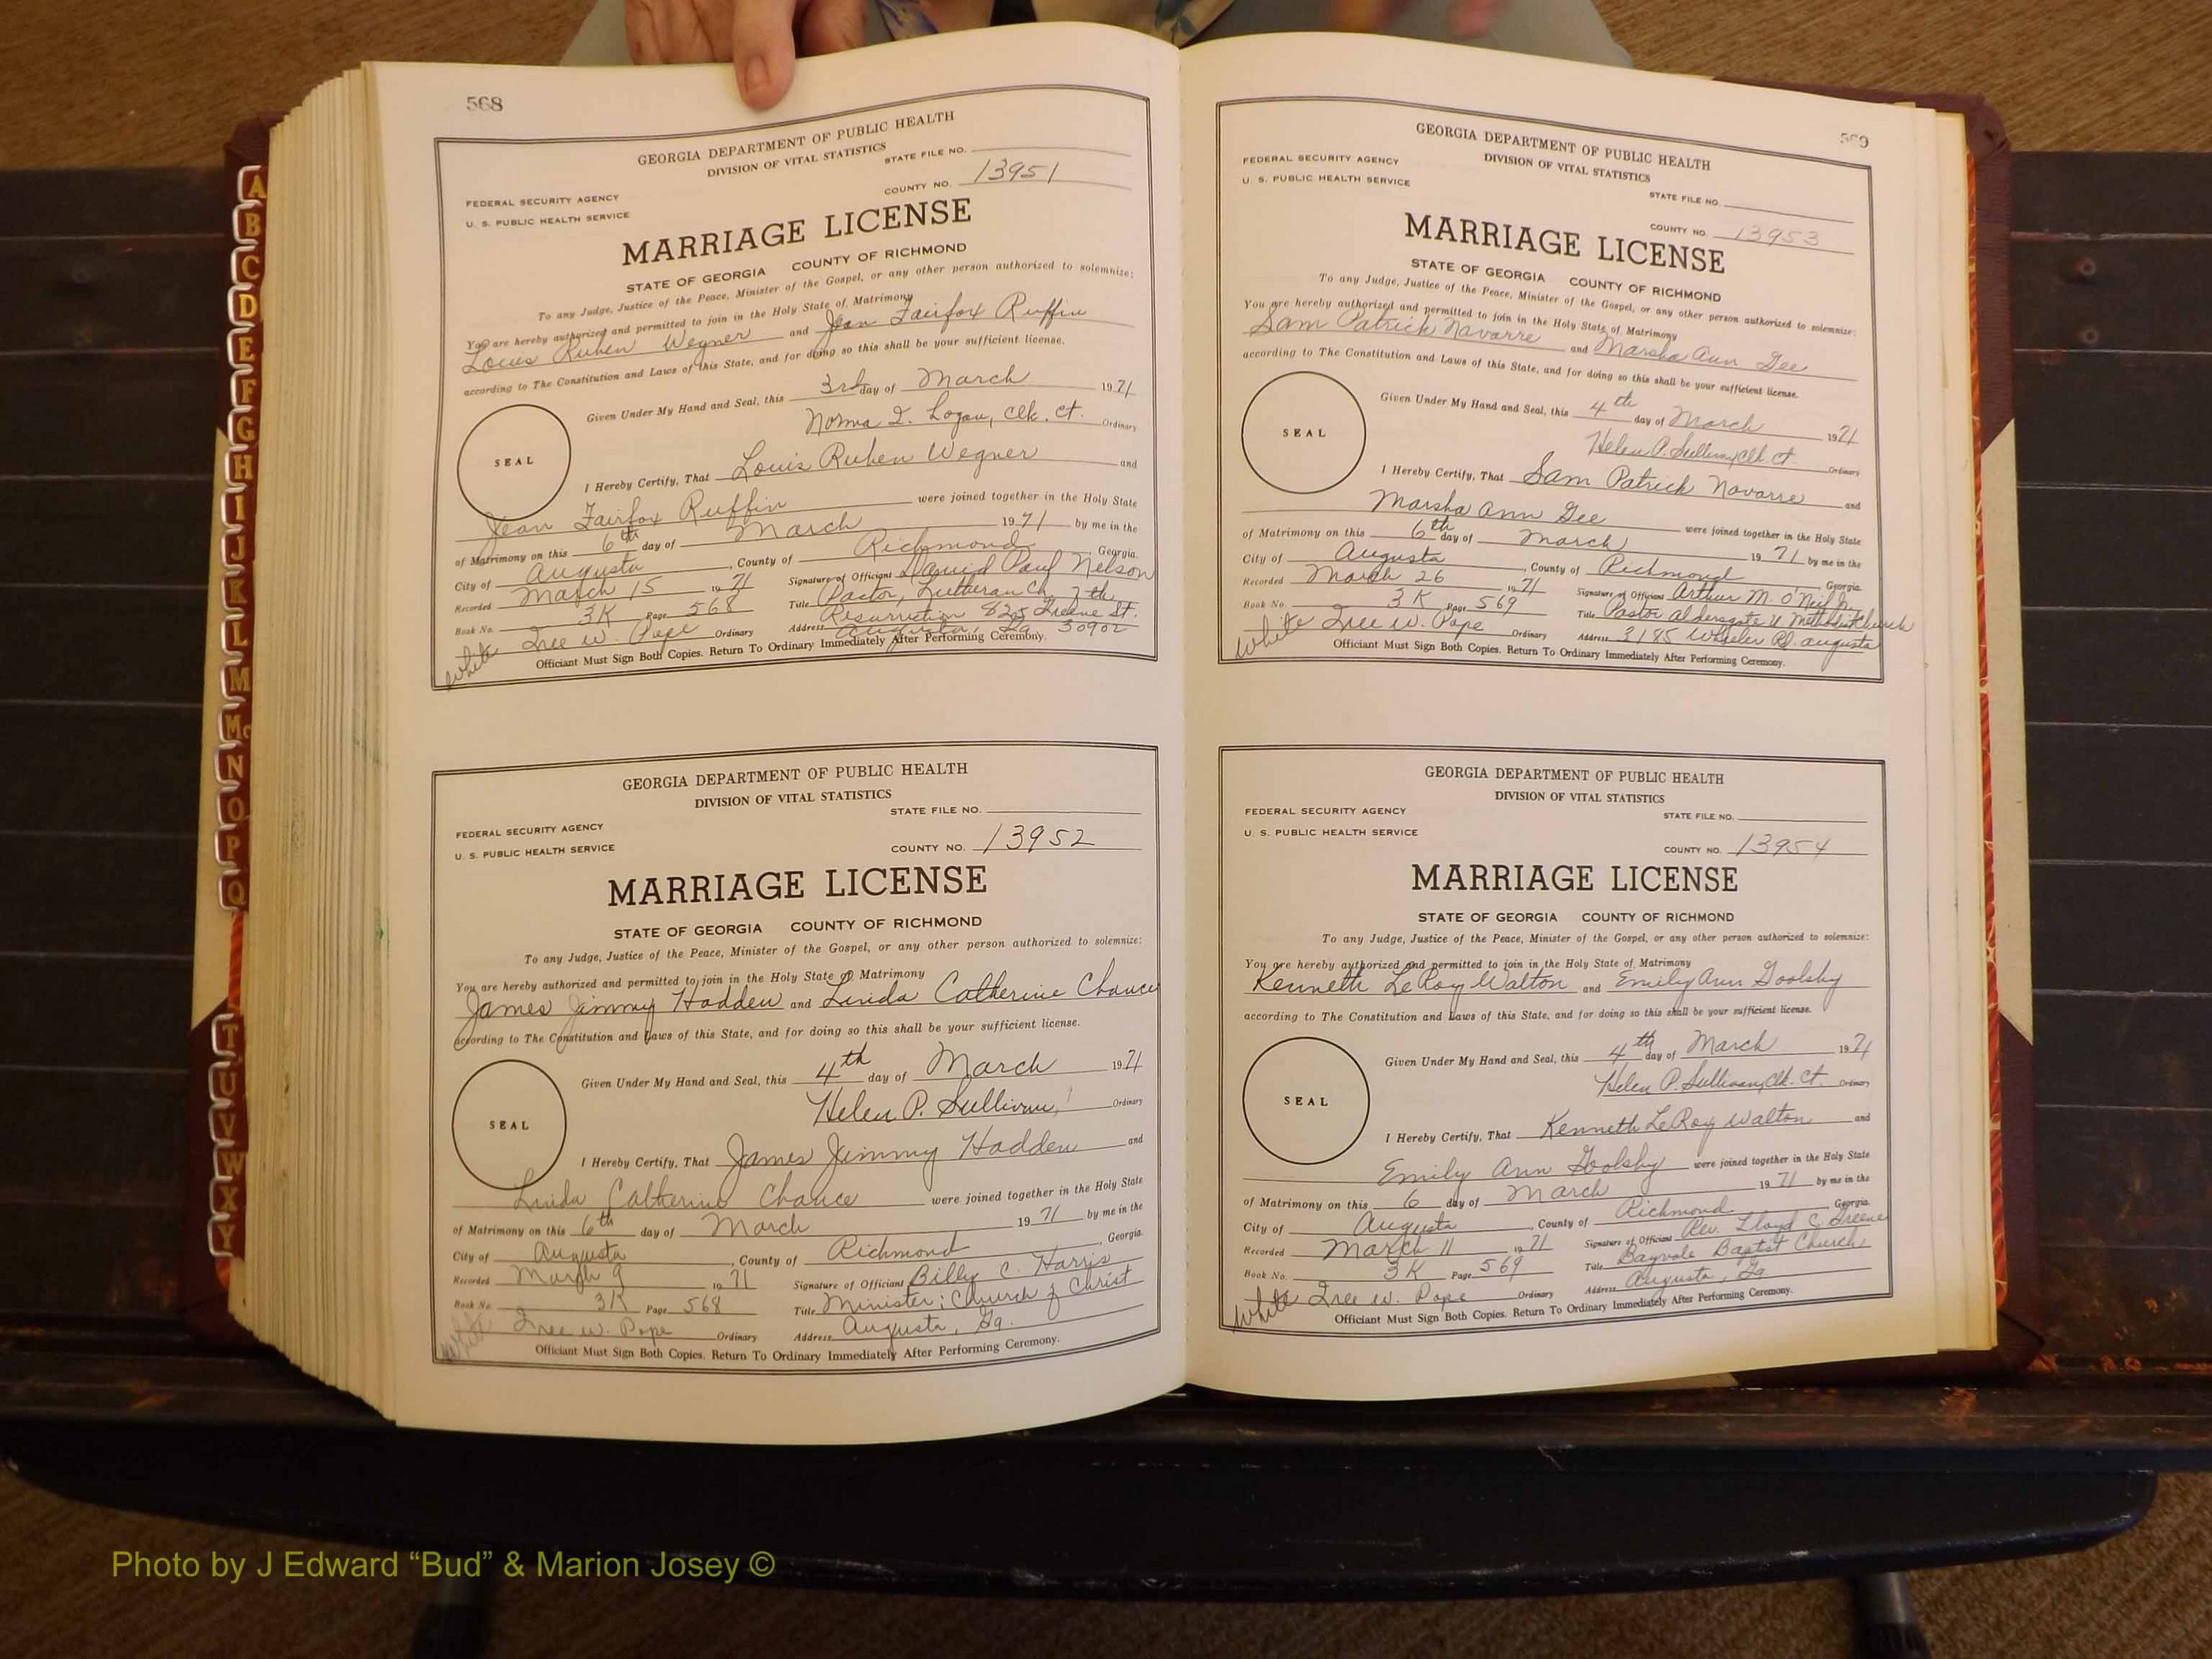 568
GEORGIA DEPARTMENT OF PUBLIC HEALTH
DIVISION OF VITAL STATISTICS
STATE FILE NO.
FEDERAL SECURITY AGENCY
U. S. PUBLIC HEALTH SERVICE
COUNTY NO. 13951
MARRIAGE LICENSE
STATE OF GEORGIA COUNTY OF RICHMOND
To any Judge, Justice of the Peace, Minister of the Gospel, or any other person authorized to solemnize:
You are hereby authorized and permitted to join in the Holy State of Matrimony
Louis Ruben Wegner and Jean Fairfax Ruffin
according to The Constitution and Laws of this State, and for doing so this shall be your sufficient license.
Given Under My Hand and Seal, this 3rd day of March 1971
Norma I. Logan, Clk. Ct. Ordinary
SEAL
I Hereby Certify, That Louis Ruben Wegner and
Jean Fairfax Ruffin were joined together in the Holy State
of Matrimony on this 6th day of March 1971 by me in the
City of Augusta, County of Richmond, Georgia.
Recorded March 15 1971 Signature of Officiant David Paul Nelson
Book No. 3K Page 568 Title Pastor, Lutheran Ch. 7 th
Resurrection 825 Greene St.
White Iree W. Pope Ordinary Address Augusta, Ga 30902
Officiant Must Sign Both Copies. Return To Ordinary Immediately After Performing Ceremony.
GEORGIA DEPARTMENT OF PUBLIC HEALTH
DIVISION OF VITAL STATISTICS
STATE FILE NO.
FEDERAL SECURITY AGENCY
U. S. PUBLIC HEALTH SERVICE
COUNTY NO. 13952
MARRIAGE LICENSE
STATE OF GEORGIA COUNTY OF RICHMOND
To any Judge, Justice of the Peace, Minister of the Gospel, or any other person authorized to solemnize:
You are hereby authorized and permitted to join in the Holy State of Matrimony
James Jimmy Hadden and Linda Catherine Chance
according to The Constitution and Laws of this State, and for doing so this shall be your sufficient license.
Given Under My Hand and Seal, this 4th day of March 1971
Helen P. Sullivan, Ordinary
SEAL
I Hereby Certify, That James Jimmy Hadden and
Linda Catherine Chance were joined together in the Holy State
of Matrimony on this 6th day of March 1971 by me in the
City of Augusta, County of Richmond, Georgia.
Recorded March 9 1971 Signature of Officiant Billy C. Harris
Book No. 3K Page 568 Title Minister; Church of Christ
White Iree W. Pope Ordinary Address Augusta, Ga.
Officiant Must Sign Both Copies. Return To Ordinary Immediately After Performing Ceremony.
569
GEORGIA DEPARTMENT OF PUBLIC HEALTH
DIVISION OF VITAL STATISTICS
FEDERAL SECURITY AGENCY
U. S. PUBLIC HEALTH SERVICE
STATE FILE NO.
COUNTY NO. 13953
MARRIAGE LICENSE
STATE OF GEORGIA COUNTY OF RICHMOND
To any Judge, Justice of the Peace, Minister of the Gospel, or any other person authorized to solemnize:
You are hereby authorized and permitted to join in the Holy State of Matrimony
Sam Patrick Navarre and Marsha Ann Gee
according to The Constitution and Laws of this State, and for doing so this shall be your sufficient license.
Given Under My Hand and Seal, this 4th day of March 1971
Helen P. Sullivan, Clk. Ct. Ordinary
SEAL
I Hereby Certify, That Sam Patrick Navarre and
Marsha Ann Gee were joined together in the Holy State
of Matrimony on this 6th day of March 1971 by me in the
City of Augusta, County of Richmond, Georgia.
Recorded March 26 1971 Signature of Officiant Arthur M. O'Neil Jr.
Book No. 3K Page 569 Title Pastor Aldersgate U Methodist Church
White Iree W. Pope Ordinary Address 3185 Wheeler Rd. Augusta
Officiant Must Sign Both Copies. Return To Ordinary Immediately After Performing Ceremony.
GEORGIA DEPARTMENT OF PUBLIC HEALTH
DIVISION OF VITAL STATISTICS
FEDERAL SECURITY AGENCY
U. S. PUBLIC HEALTH SERVICE
STATE FILE NO.
COUNTY NO. 13954
MARRIAGE LICENSE
STATE OF GEORGIA COUNTY OF RICHMOND
To any Judge, Justice of the Peace, Minister of the Gospel, or any other person authorized to solemnize:
You are hereby authorized and permitted to join in the Holy State of Matrimony
Kenneth LeRoy Walton and Emily Ann Goolsby
according to The Constitution and Laws of this State, and for doing so this shall be your sufficient license.
Given Under My Hand and Seal, this 4th day of March 1971
Helen P. Sullivan, Clk. Ct. Ordinary
SEAL
I Hereby Certify, That Kenneth LeRoy Walton and
Emily Ann Goolsby were joined together in the Holy State
of Matrimony on this 6 day of March 1971 by me in the
City of Augusta, County of Richmond, Georgia.
Recorded March 11 1971 Signature of Officiant Rev. Lloyd C. Greene
Book No. 3K Page 569 Title Bayvale Baptist Church
White Iree W. Pope Ordinary Address Augusta, Ga
Officiant Must Sign Both Copies. Return To Ordinary Immediately After Performing Ceremony.
A
B
C
D
E
F
G
H
I
J
K
L
M
Mc
N
O
P
Q
T
U
V
W
X
Y
Photo by J Edward “Bud” & Marion Josey ©